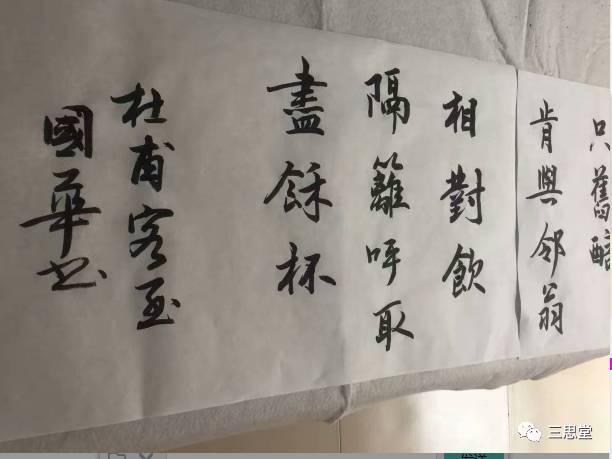 只舊醅
肯與邻翁
相對飲
隔籬呼取
盡餘杯
杜甫客至
國華书
三思堂